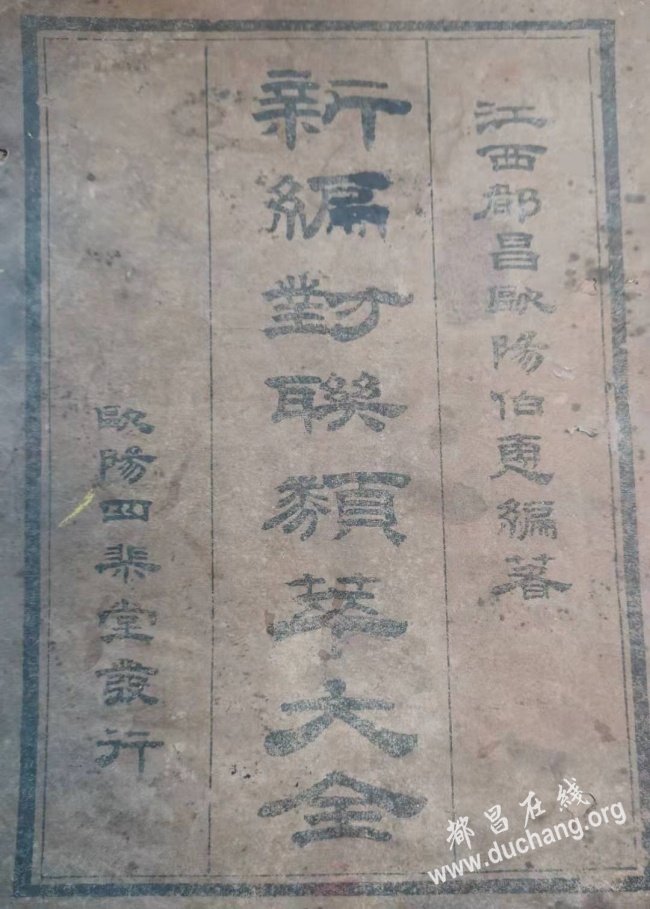 江西都昌歐陽伯編著
新編對聯類萃大全
歐陽四棐堂發行
都昌在线
www.duchang.org